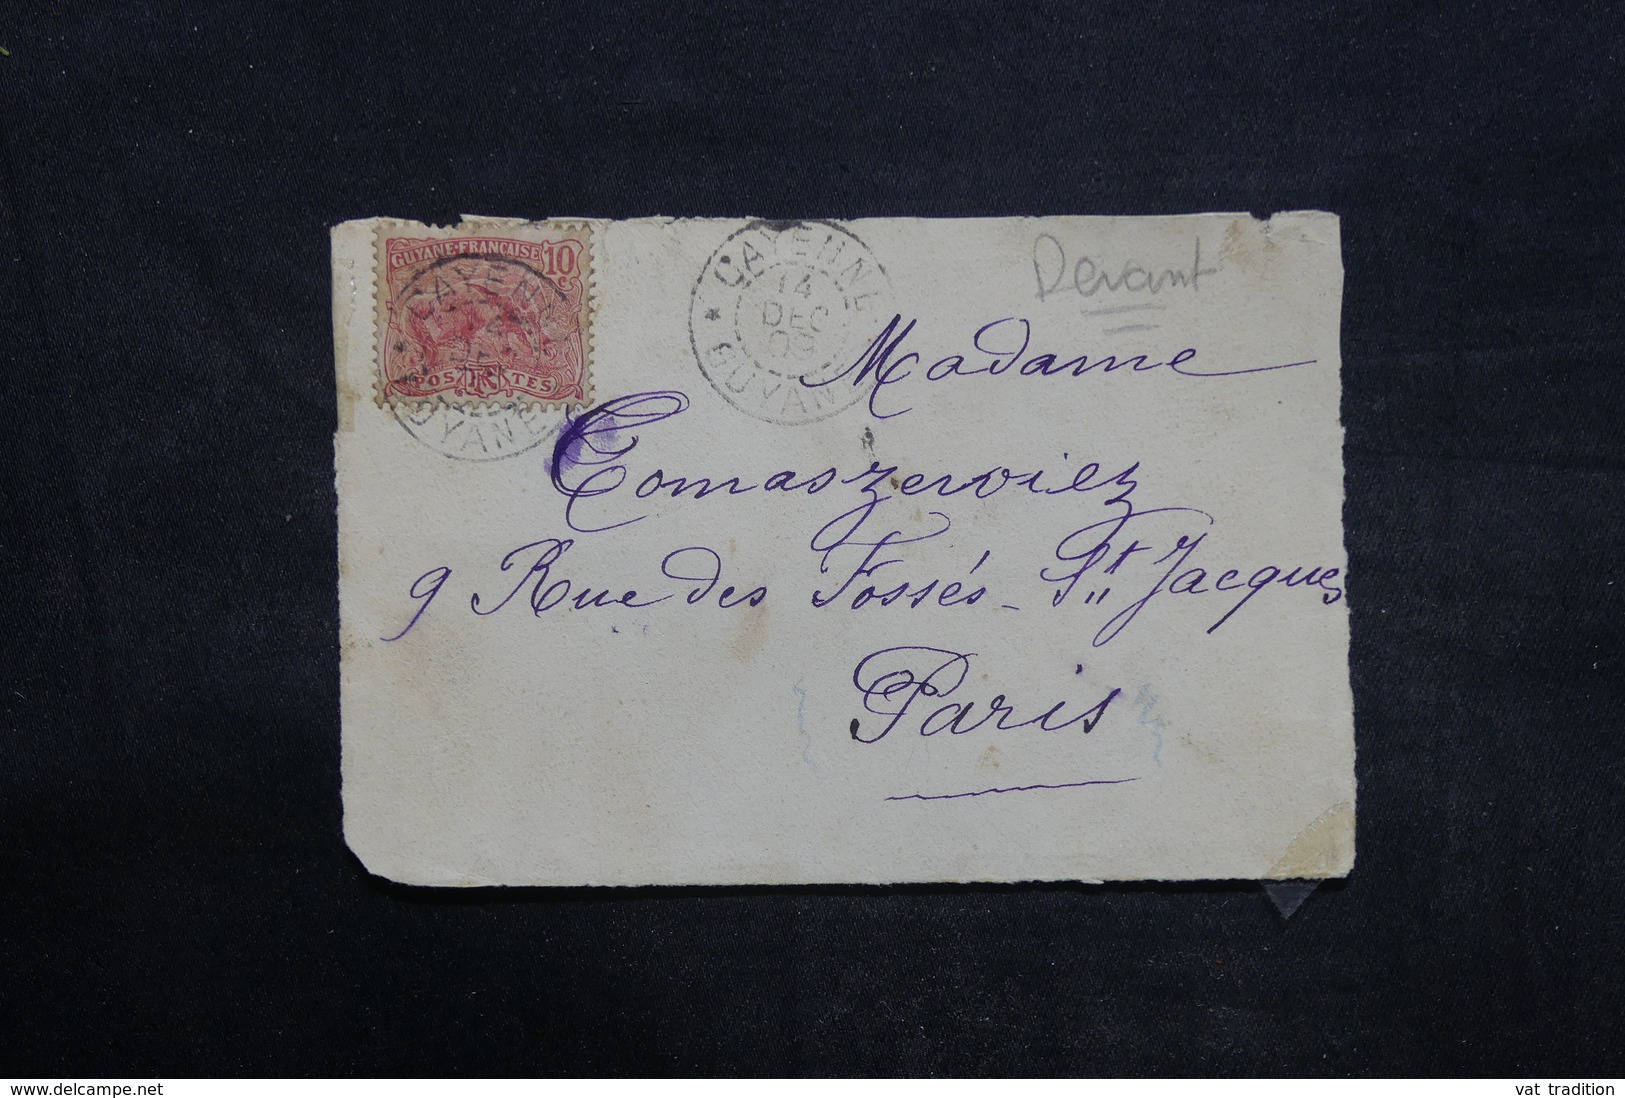 GUYANE·FRANÇAISE 10 c.
POSTES
RF
CAYENNE
14
DEC
09
GUYANE
Devant
Madame
Tomaszerviez
9 Rue des Fossés - St Jacques
Paris
www.delcampe.net
vat tradition